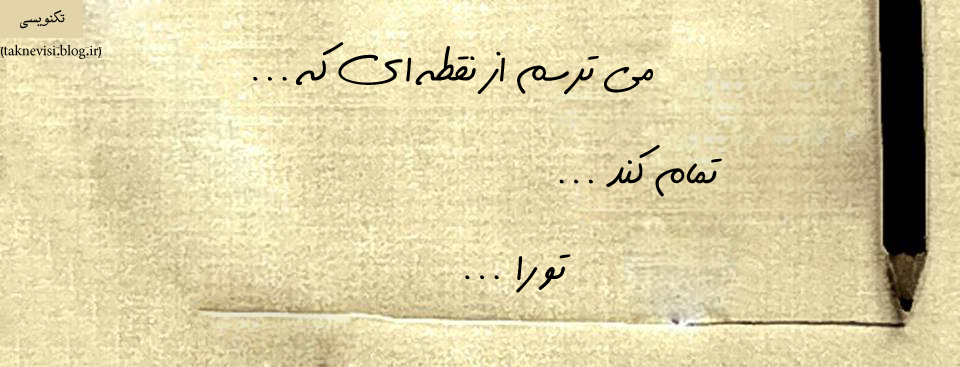 تکنویسی
(taknevisi.blog.ir)
می ترسم از نقطه ای که ...
تمام کند ...
تو را ...